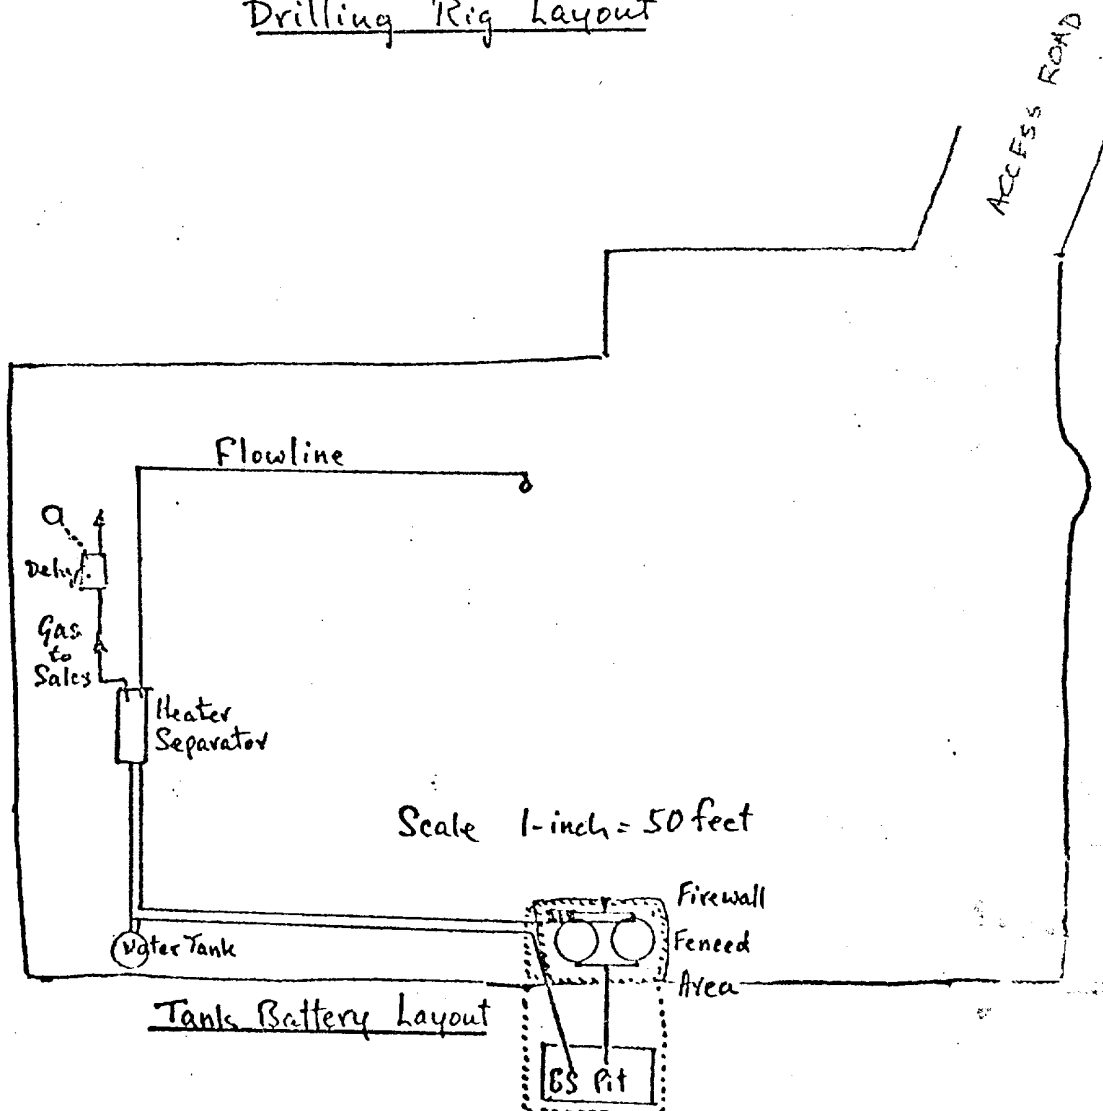 Drilling Rig Layout
ACCESS ROAD
Flowline
Dehy.
Gas
to
Sales
Heater
Separator
Scale 1-inch = 50 feet
Firewall
Fenced
Area
Water Tank
Tank Battery Layout
BS Pit